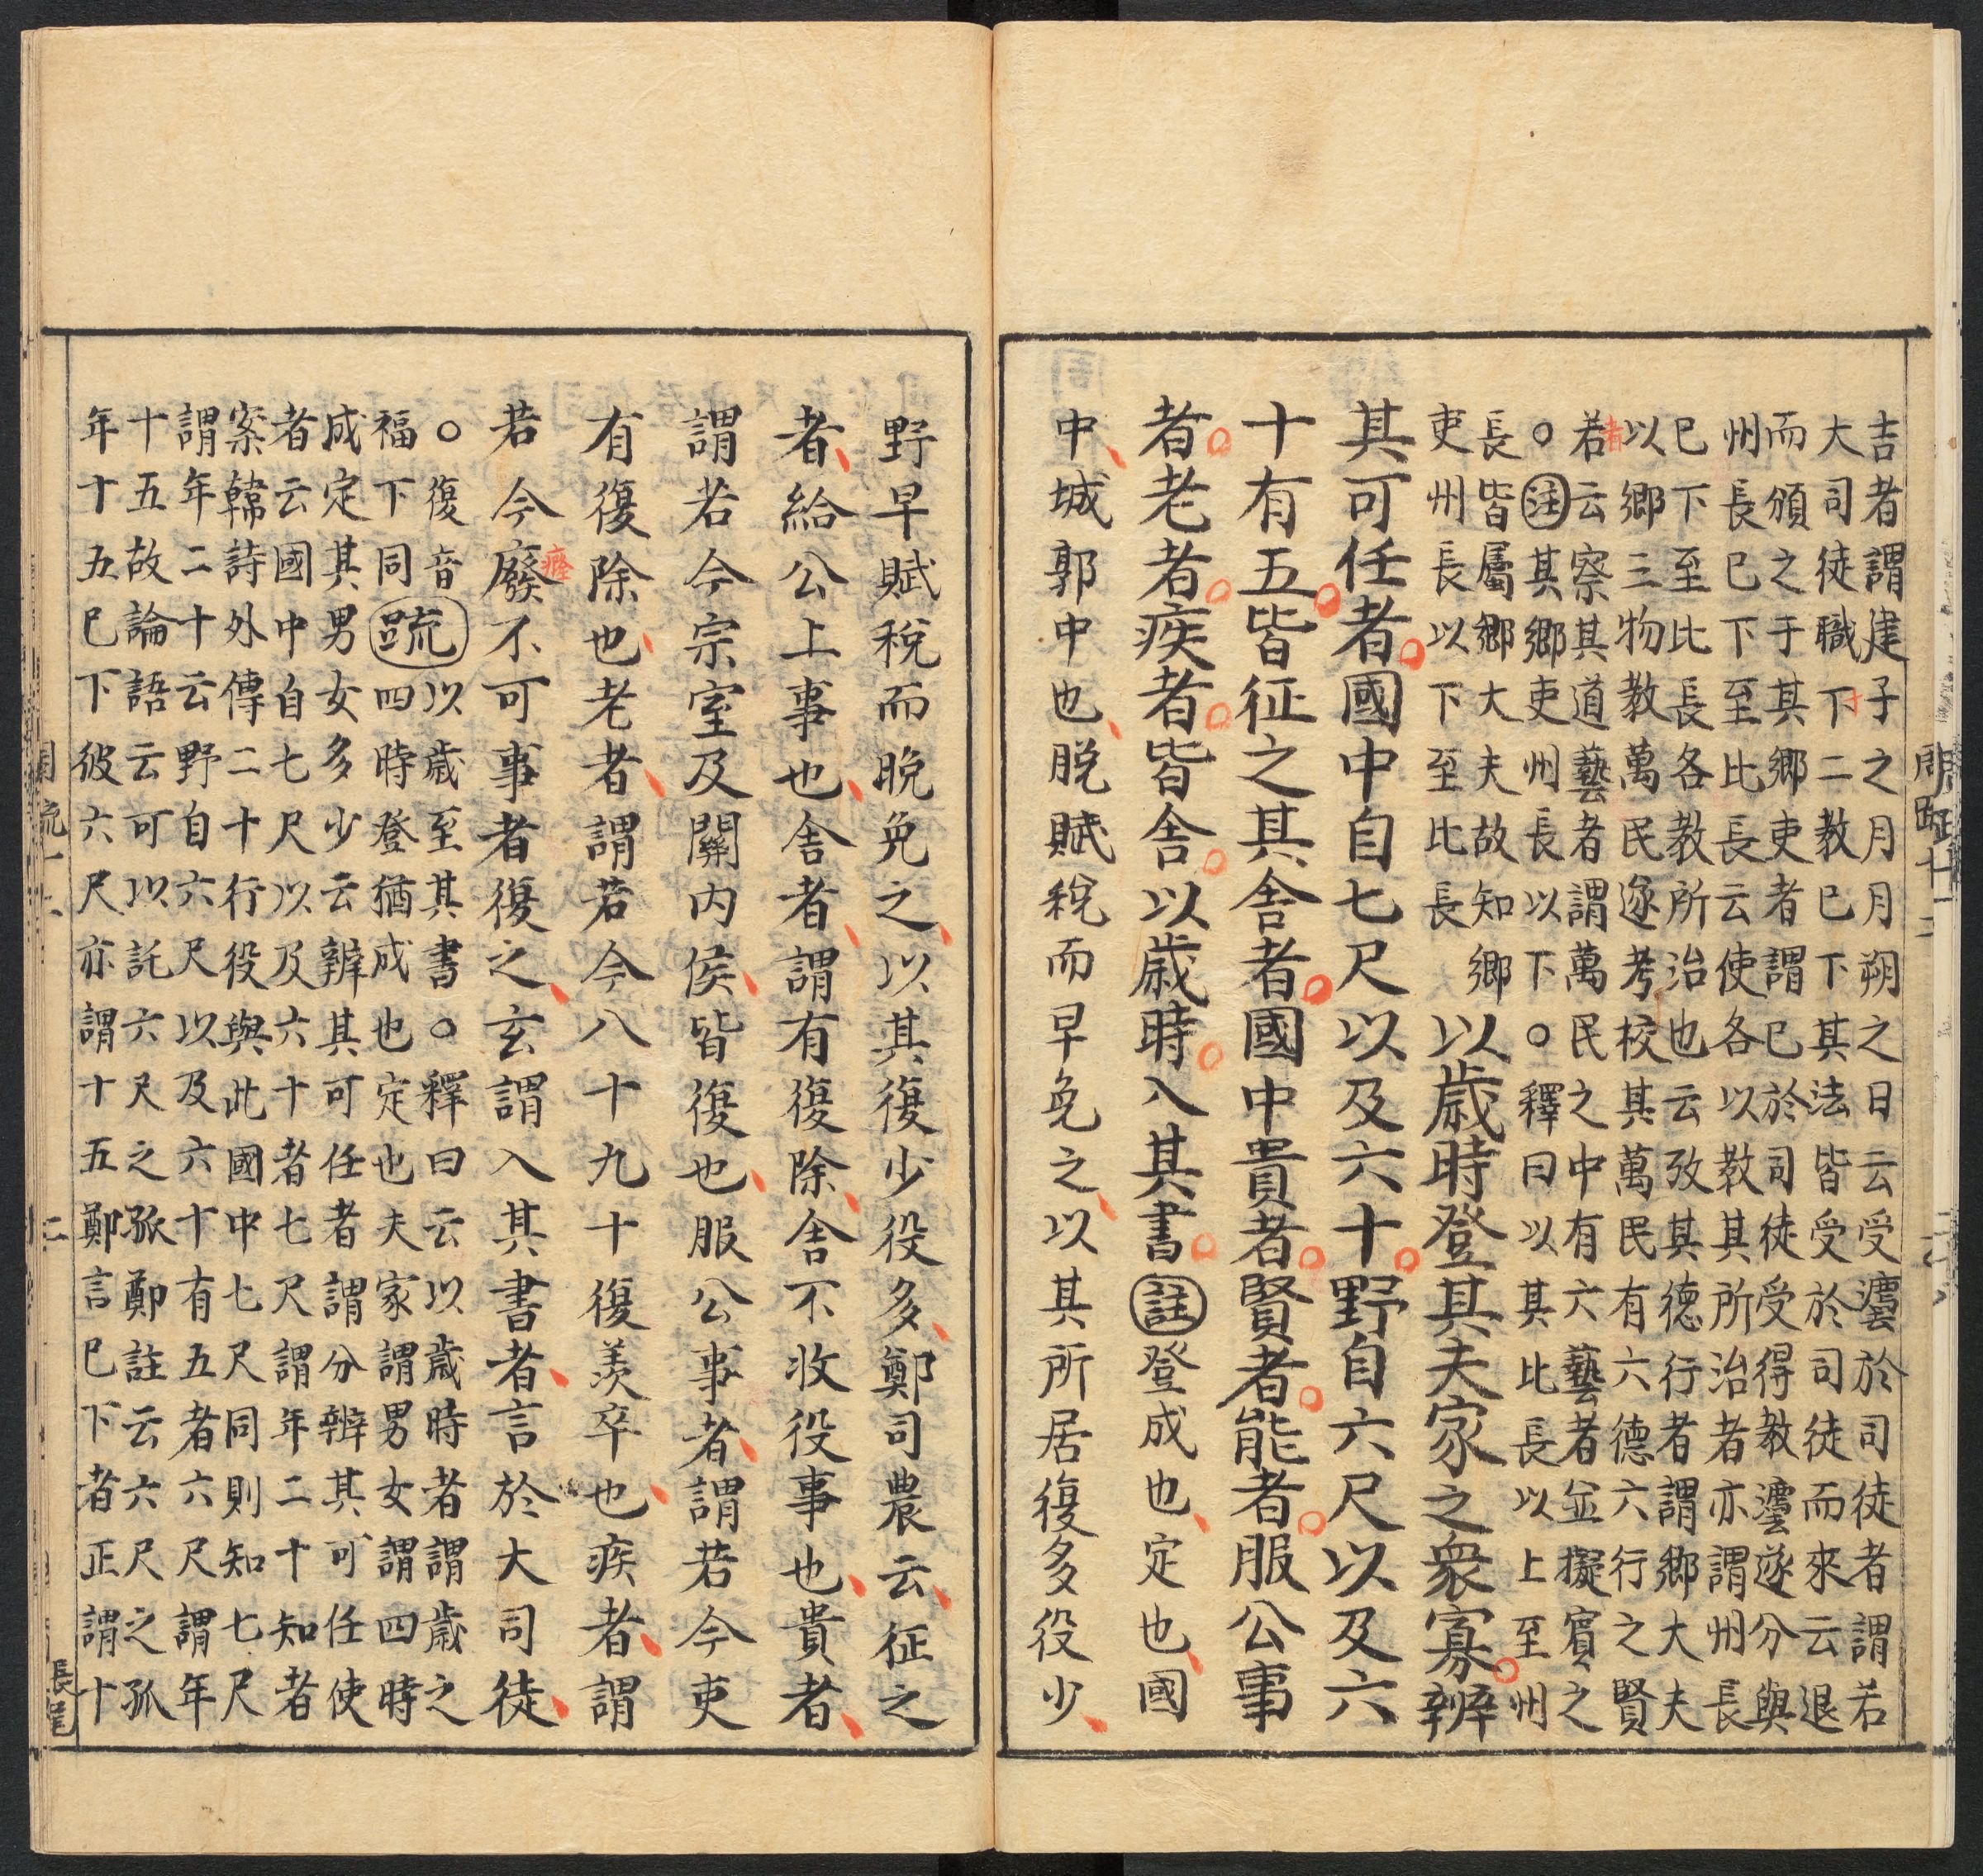 吉者謂建子之月月朔之日云受灋於司徒者謂若
大司徒職下十二教已下其法皆受於司徒而來云退
而頒之于其鄉吏者謂已於司徒受得教灋遂分與
州長已下至比長云使各以教其所治者亦謂州長
已下至比長各教所治也云攷其德行者謂鄉大夫
以鄉三物教萬民遂考校其萬民有六德六行之賢
者
若云察其道藝者謂萬民之中有六藝者並擬賓之
○註其鄉吏州長以下○釋曰以其比長以上至州
長皆屬鄉大夫故知鄉
吏州長以下至比長
以歲時登其夫家之衆寡辨
其可任者國中自七尺以及六十野自六尺以及六
十有五皆征之其舍者國中貴者賢者能者服公事
者老者疾者皆舍以歲時入其書註登成也定也國
中城郭中也脫賦稅而早免之以其所居復多役少
周疏十二
野早賦稅而晚免之以其復少役多鄭司農云征之
者給公上事也舍者謂有復除舍不收役事也貴者
謂若今宗室及關內侯皆復也服公事者謂若今吏
有復除也老者謂若今八十九十復羨卒也疾者謂
若今廢不可事者復之玄謂入其書者言於大司徒
癃
○復音
福下同
疏
以歲至其書○釋曰云以歲時者謂歲之
四時登猶成也定也夫家謂男女謂四時
成定其男女多少云辨其可任者謂分辨其可任使
者云國中自七尺以及六十者七尺謂年二十知者
案韓詩外傳二十行役與此國中七尺同則知七尺
謂年二十云野自六尺以及六十有五者六尺謂年
十五故論語云可以託六尺之孤鄭註云六尺之孤
年十五已下彼六尺亦謂十五鄭言已下者正謂十
長尾